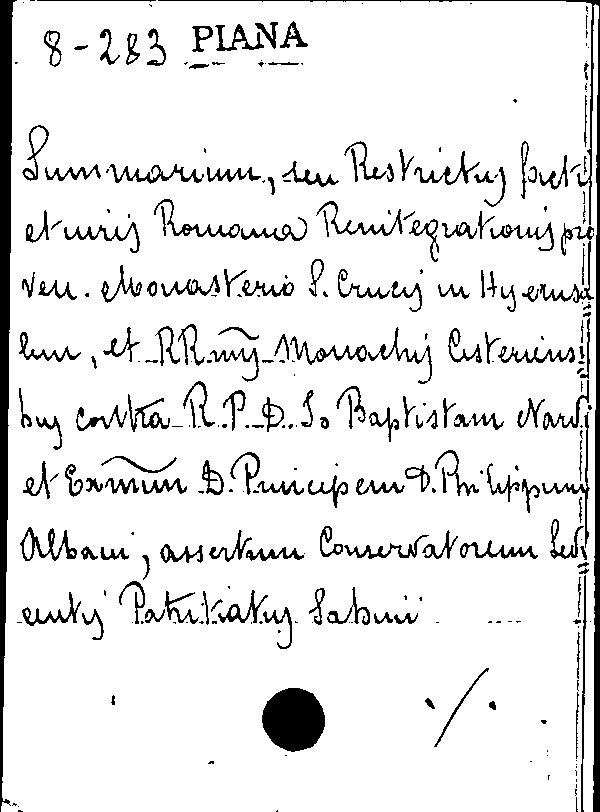 8-283 PIANA
Summarium, seu Restrictus facti
et iuris Romana Reintegrationis pro
Ven. Monasterio S. Crucis in Hyerusa
lem, et RR.mis Monachis Cisterciensi
bus contra R.P.D. Jo Baptistam Nardi
et Exmum D. Principem D. Philippum
Albani, assertum Conservatorem
Patrikatus Sabini
./.